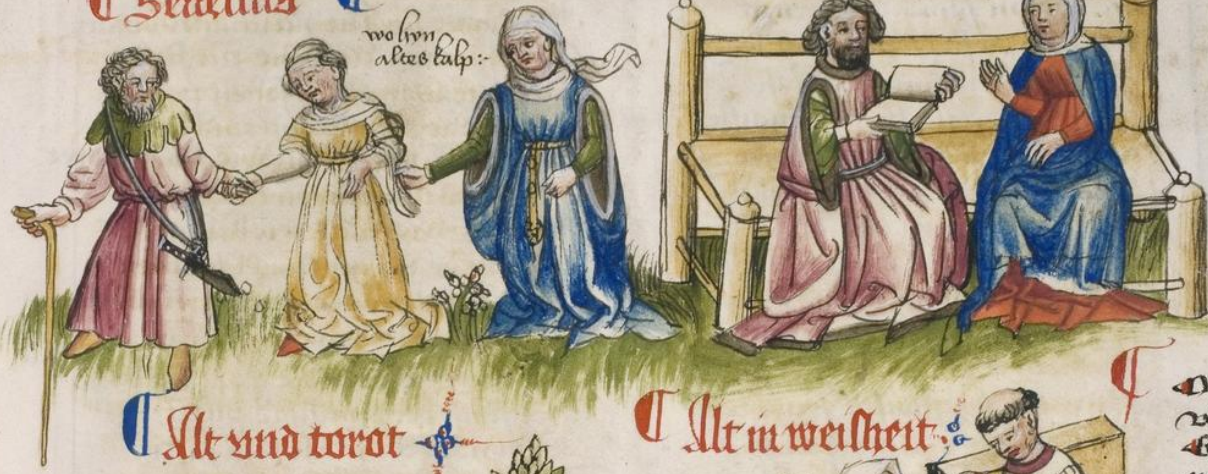 wo hyn
altes kalp:-
Alt vnd torot
Alt in weisheit